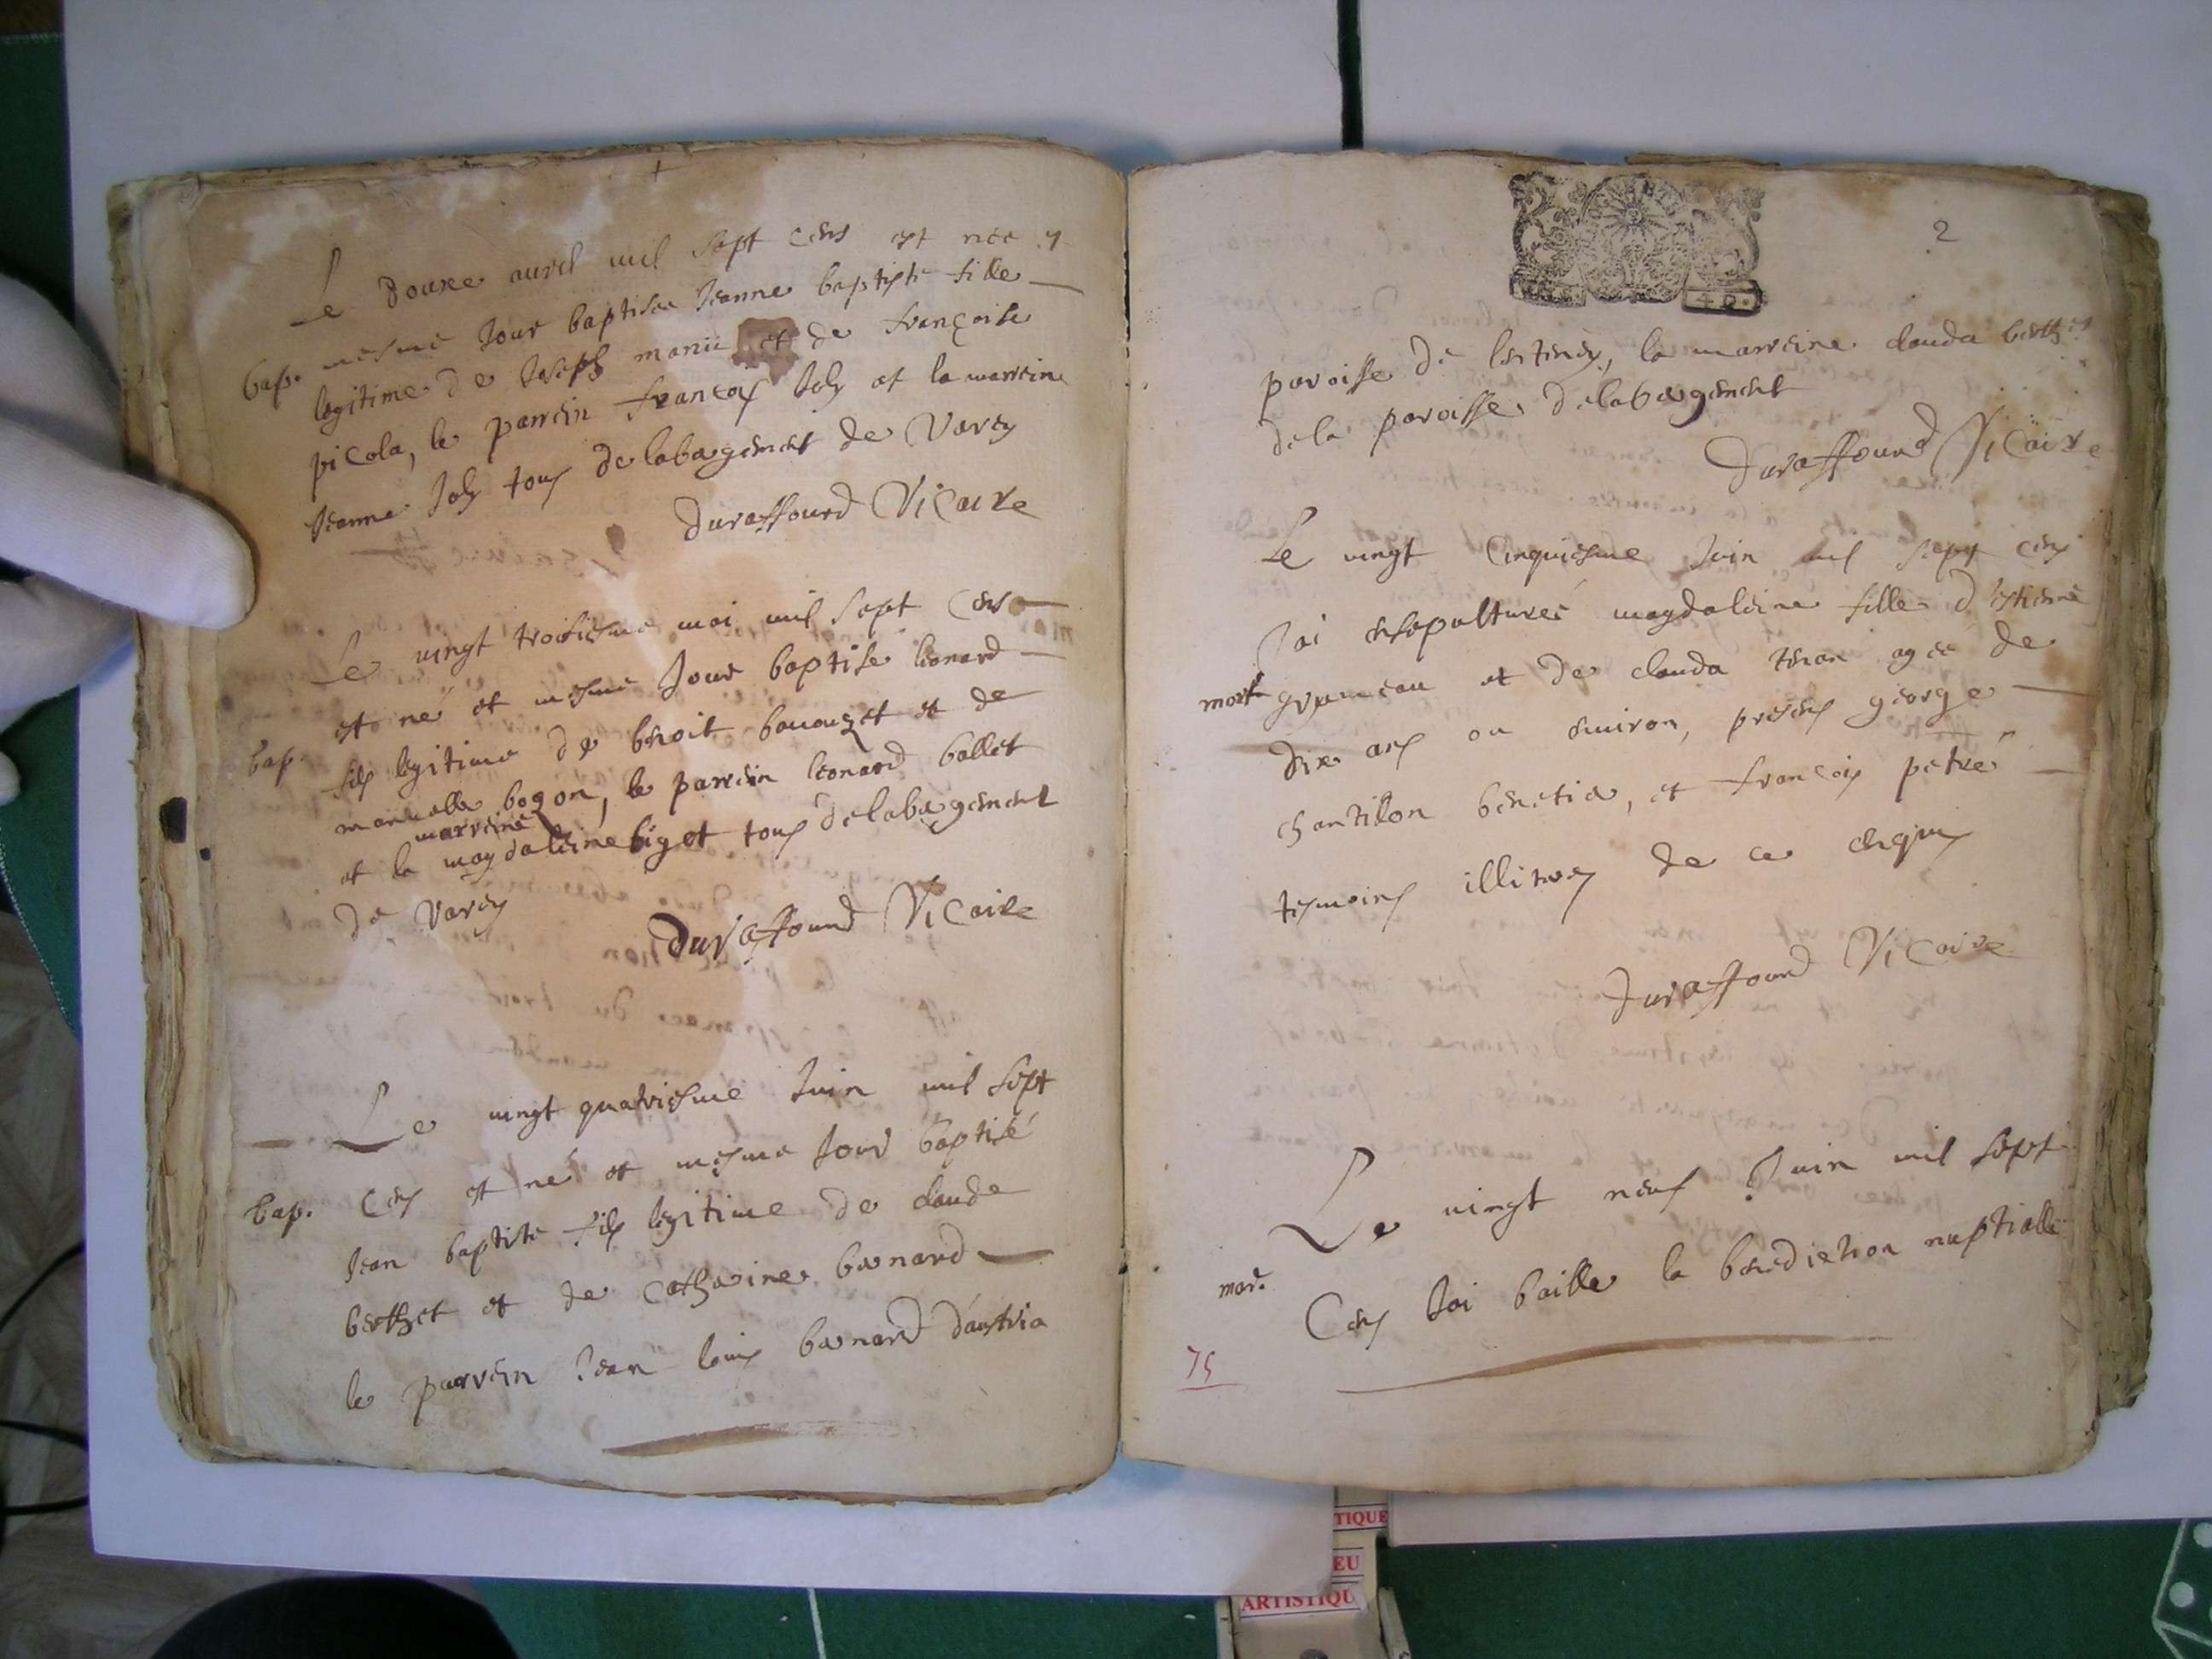 Le douxe auril mil sept cens est née et
bap. mesme Jour baptisée Jeanne baptiste fille
legitime de Joseph et de françoise
picola, le parrein françois Joly et la marreine
Jeanne Joly tous de labergement de Varey
Duraffourd Vicaire
Le vingt troisiesme mai mil sept Cens
est né et mesme Jour baptisé leonard
bap. fils legitime de benoit bououzet et de
bozon, le parrein leonard ballet
marreine
et la magdaleine bigot tous de labergement
de Varey
Duraffourd Vicaire
Le vingt quatriesme Juin mil sept
bap. Cens est né et mesme Jour baptisé
Jean baptiste fils legitime de claude
berthet et de Catherine bernard
le parrein Jean louis bernard
2
paroisse de la marreine clauda berthet
de la paroisse de labergement
Duraffourd Vicaire
Le vingt Cinquiesme Juin mil sept cens
J'ai ensepulturée magdaleine fille d'estienne
mort et de clauda agée de
dix ans ou enuiron, presens george
chantillon benetier, et françois petré
tesmoins illitres de ce enquis
Duraffourd Vicaire
Le vingt neuf Juin mil sept
mar. Cens Jai baille la benediction nuptialle
75
TIQUE
EU
ARTISTIQU